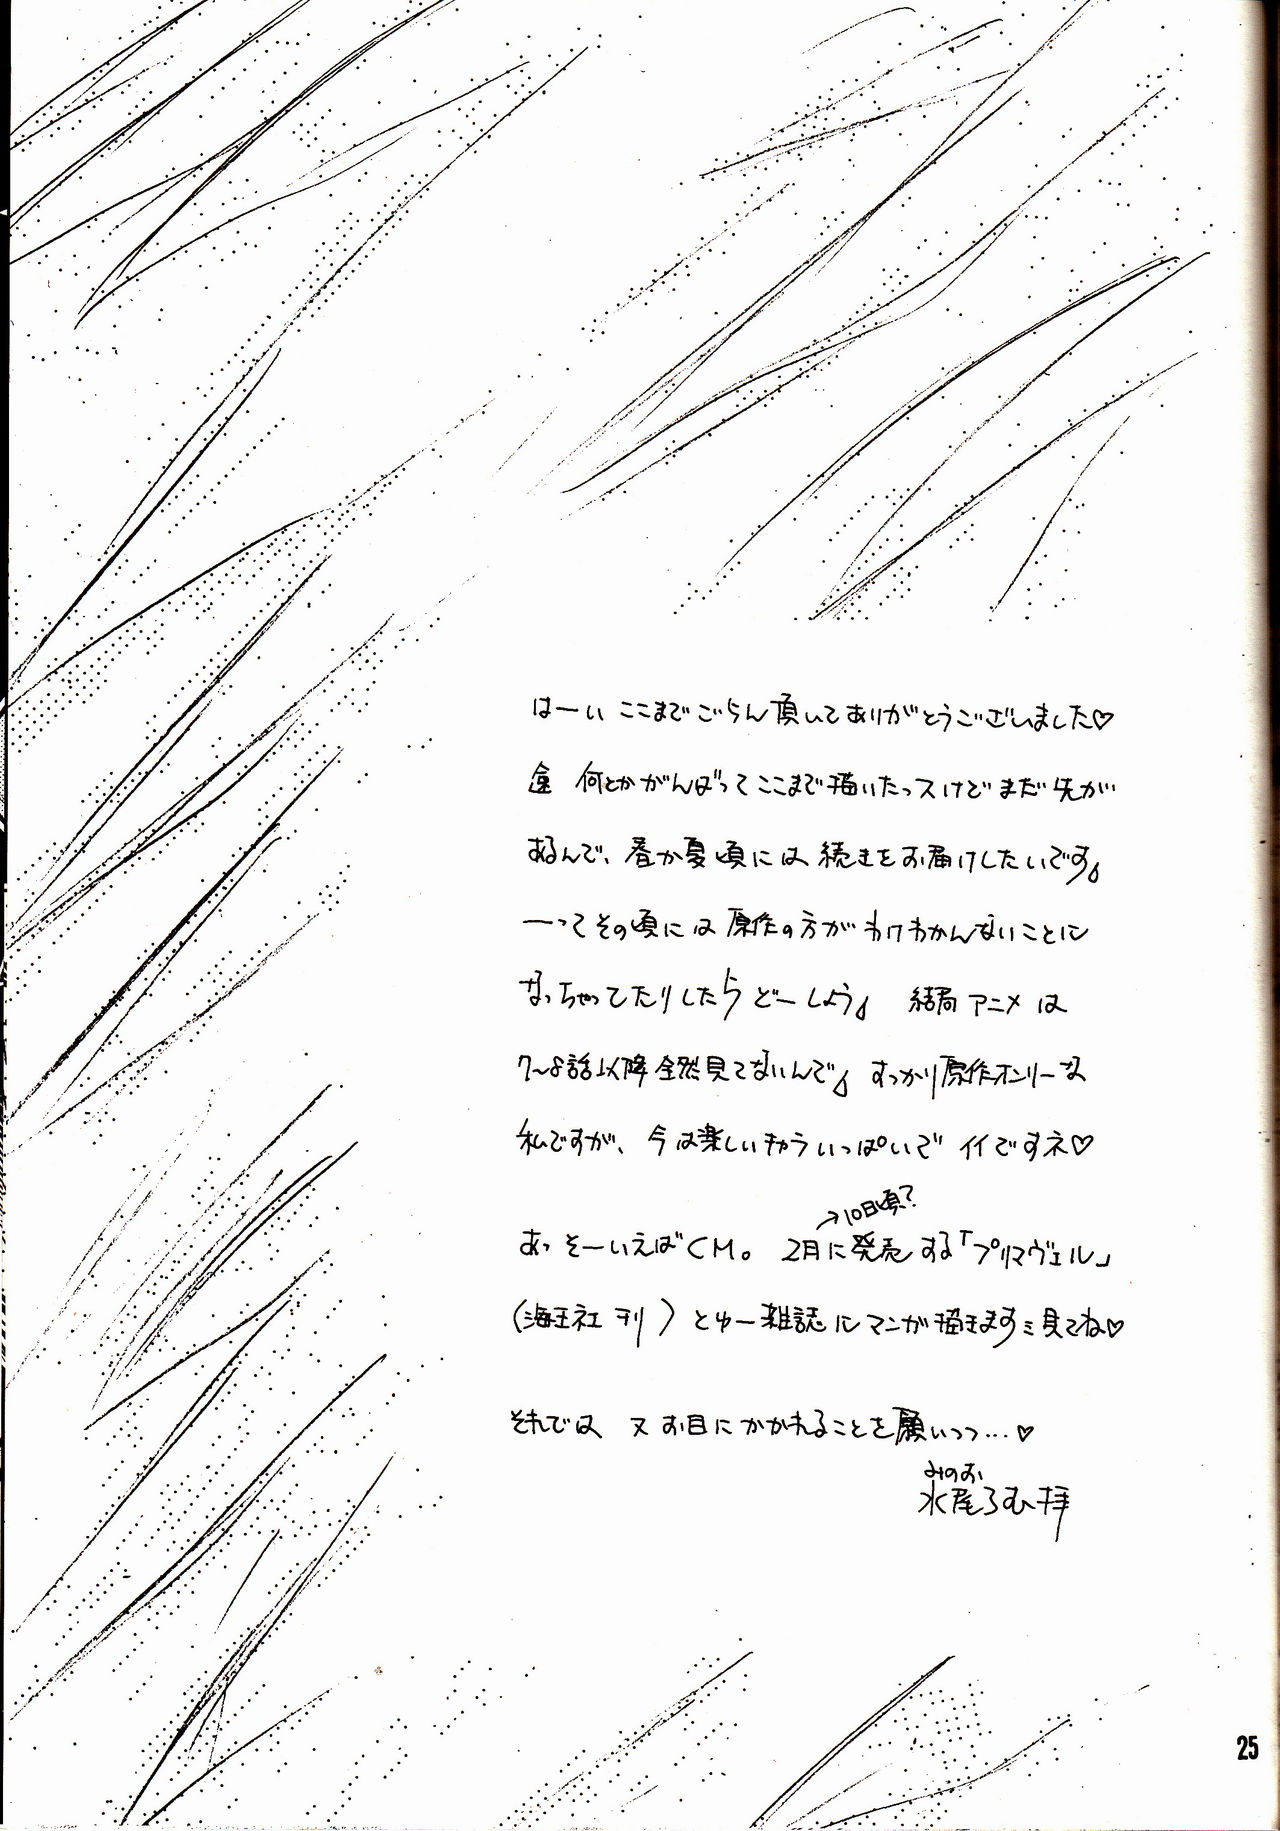 はーい ここまでごらん頂いてありがとうございました♡
何とかがんばってここまで描いたっスけどまだ先が
あるんで、春か夏頃には続きをお届けしたいです。
ーってその頃には原作の方がわけわかんないことに
なっちゃってたりしたらどーしよう。 結局アニメは
7〜8話以降全然見てないんで。 すっかり原作オンリーな
私ですが、今は楽しいキャラいっぱいでイイですネ♡
→10日頃?
あっそーいえばCM。 2月に発売する「プリマヴェル」
(海王社刊)とゆー雑誌にマンガ描きます 見てね♡
それでは 又お目にかかれることを願いつつ…♡
みのお
水尾ろむ拝
25